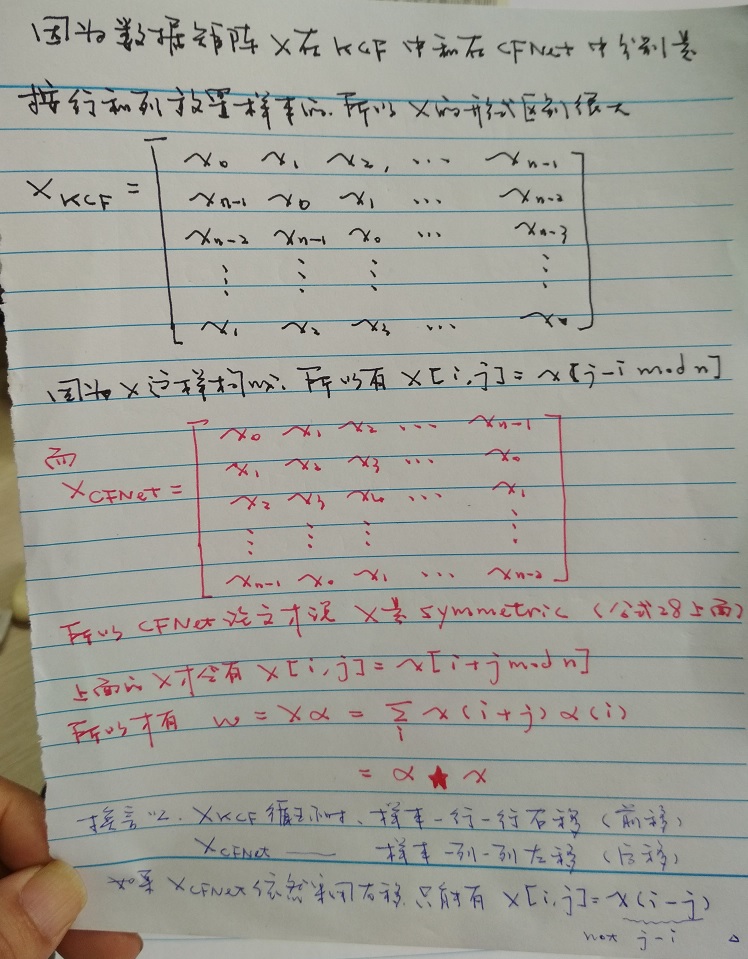 因为数据矩阵 X 在 KCF 中和在 CFNet 中分别是
按行和列放置样本的. 所以 X 的形式区别很大
X_KCF = [ x_0 x_1 x_2, ... x_{n-1}
x_{n-1} x_0 x_1 ... x_{n-2}
x_{n-2} x_{n-1} x_0 ... x_{n-3}
⋮ ⋮ ⋮ ⋮
x_1 x_2 x_3 ... x_0 ]
因为 X 这样构成. 所以有 X[i,j] = x[j-i mod n]
而
X_CFNet = [ x_0 x_1 x_2 ... x_{n-1}
x_1 x_2 x_3 ... x_0
x_2 x_3 x_4 ... x_1
⋮ ⋮ ⋮ ⋮
x_{n-1} x_0 x_1 ... x_{n-2} ]
所以 CFNet 论文才说 X 是 symmetric (公式28上面)
上面的 X 才会有 X[i,j] = x[i+j mod n]
所以才有 w = Xα = Σ_i x(i+j) α(i)
= α ★ x
换言之. X_KCF 循环时, 样本一行一行右移 (前移)
X_CFNet —— 样本一列一列左移 (后移)
如果 X_CFNet 依然采用右移. 只能有 X[i,j] = x(i-j)
not j-i